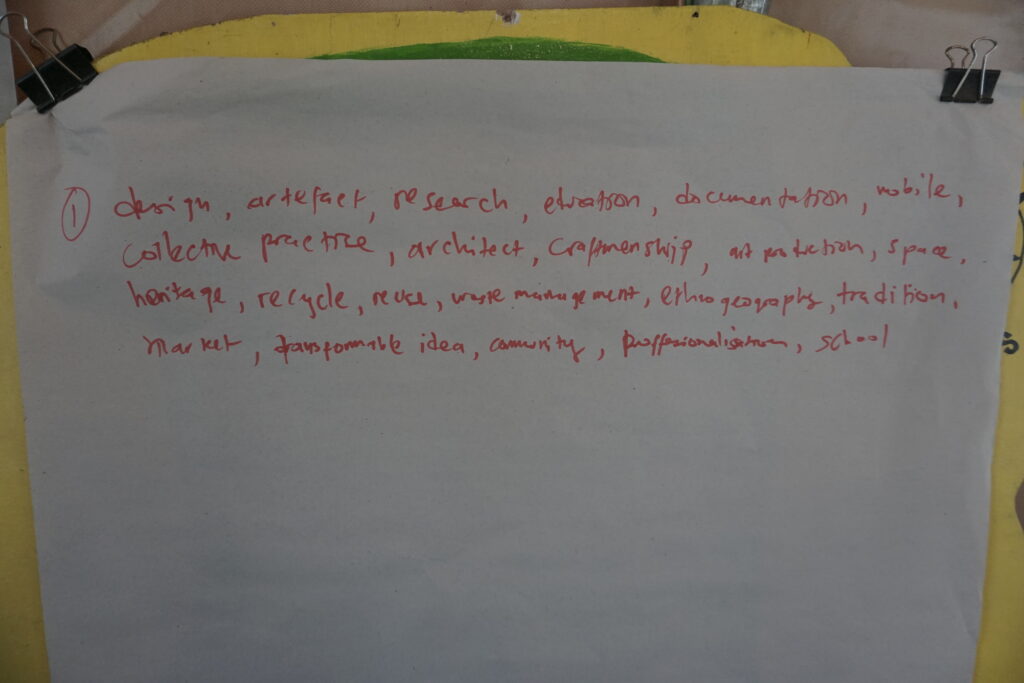 ① design, artefact, research, education, documentation, mobile,
collective practise, architect, craftmenship, art production, space,
heritage, recycle, reuse, waste management, ethnogeography, tradition,
market, transformable idea, community, proffesionalisation, school